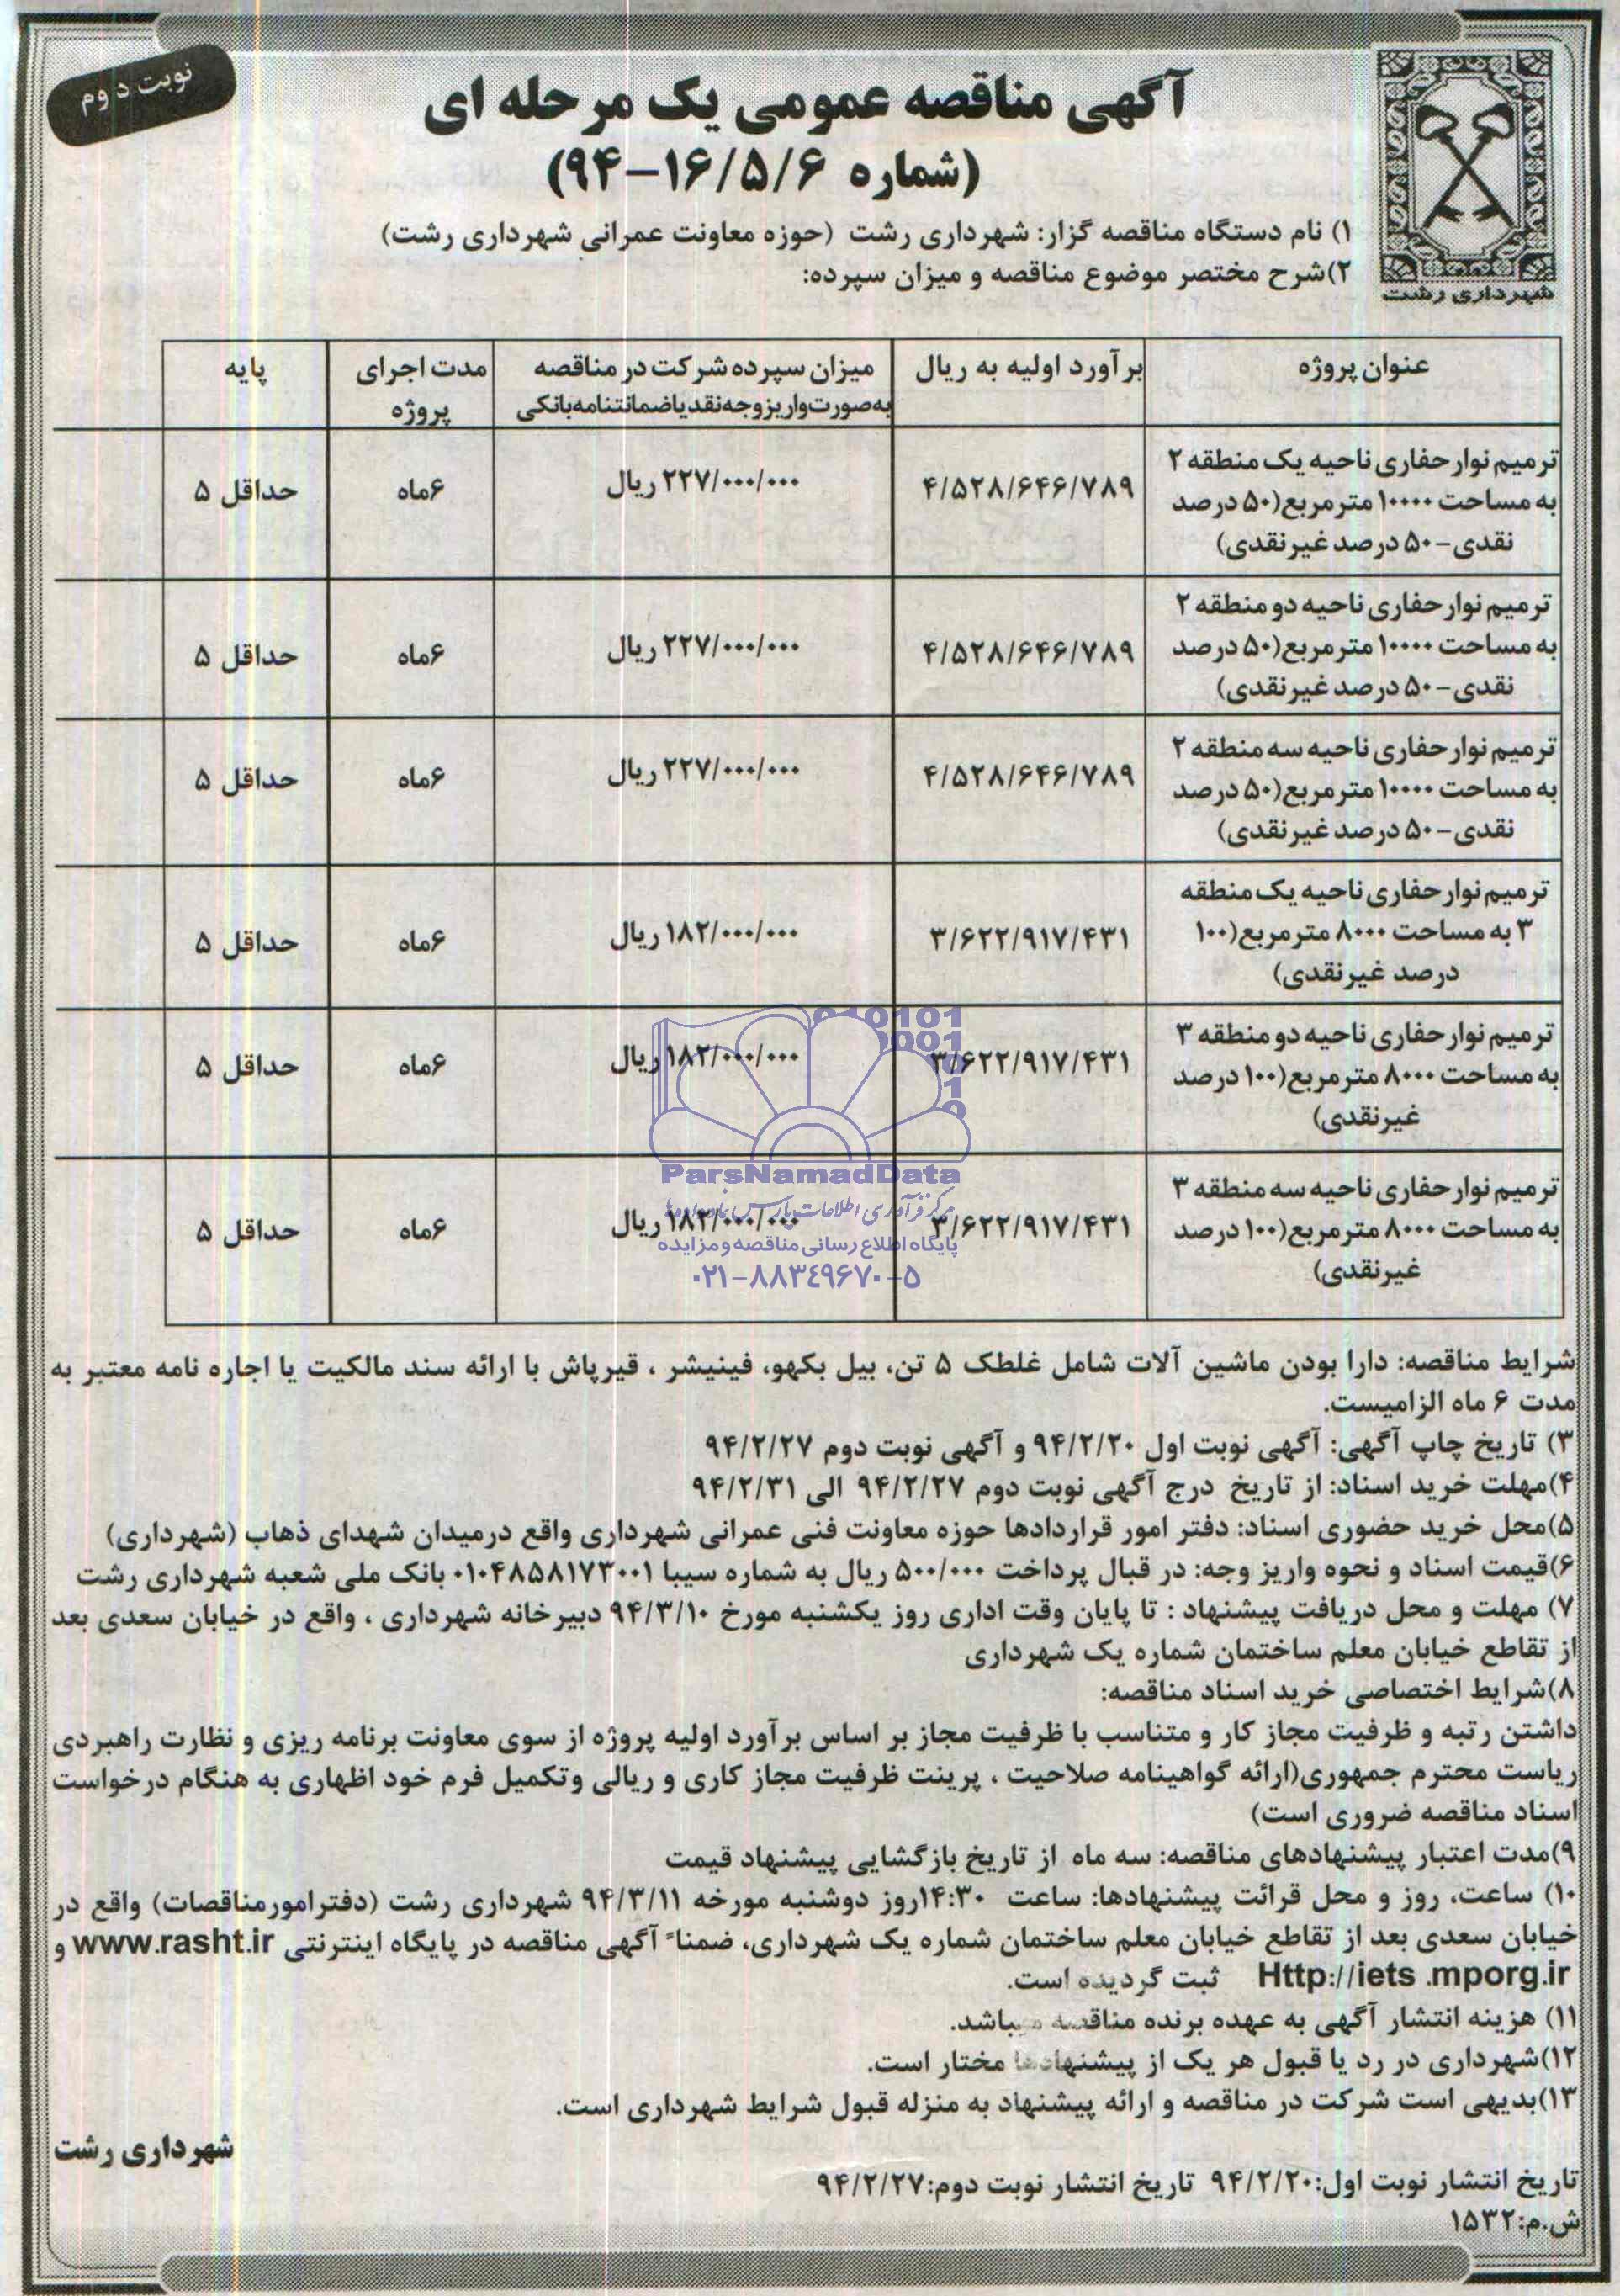 نوبت دوم
آگهی مناقصه عمومی یک مرحله ای
(شماره ۱۶/۵/۶-۹۴)
شهرداری رشت
۱) نام دستگاه مناقصه گزار: شهرداری رشت (حوزه معاونت عمرانی شهرداری رشت)
۲)شرح مختصر موضوع مناقصه و میزان سپرده:
عنوان پروژه
برآورد اولیه به ریال
میزان سپرده شرکت در مناقصه
به صورت واریز وجه نقد یا ضمانتنامه بانکی
مدت اجرای
پروژه
پایه
ترمیم نوار حفاری ناحیه یک منطقه ۲
به مساحت ۱۰۰۰۰ متر مربع(۵۰ درصد
نقدی-۵۰ درصد غیرنقدی)
۴/۵۲۸/۶۴۶/۷۸۹
۲۲۷/۰۰۰/۰۰۰ ریال
۶ماه
حداقل ۵
ترمیم نوار حفاری ناحیه دو منطقه ۲
به مساحت ۱۰۰۰۰ متر مربع(۵۰ درصد
نقدی-۵۰ درصد غیرنقدی)
۴/۵۲۸/۶۴۶/۷۸۹
۲۲۷/۰۰۰/۰۰۰ ریال
۶ماه
حداقل ۵
ترمیم نوار حفاری ناحیه سه منطقه ۲
به مساحت ۱۰۰۰۰ متر مربع(۵۰ درصد
نقدی-۵۰ درصد غیرنقدی)
۴/۵۲۸/۶۴۶/۷۸۹
۲۲۷/۰۰۰/۰۰۰ ریال
۶ماه
حداقل ۵
ترمیم نوار حفاری ناحیه یک منطقه
۳ به مساحت ۸۰۰۰ متر مربع(۱۰۰
درصد غیرنقدی)
۳/۶۲۲/۹۱۷/۴۳۱
۱۸۲/۰۰۰/۰۰۰ ریال
۶ماه
حداقل ۵
ترمیم نوار حفاری ناحیه دو منطقه ۳
به مساحت ۸۰۰۰ متر مربع(۱۰۰ درصد
غیرنقدی)
۳/۶۲۲/۹۱۷/۴۳۱
۱۸۲/۰۰۰/۰۰۰ ریال
۶ماه
حداقل ۵
ترمیم نوار حفاری ناحیه سه منطقه ۳
به مساحت ۸۰۰۰ متر مربع(۱۰۰ درصد
غیرنقدی)
۳/۶۲۲/۹۱۷/۴۳۱
۱۸۲/۰۰۰/۰۰۰ ریال
۶ماه
حداقل ۵
ParsNamadData
مرکز فرآوری اطلاعات پارس نماد داده ها
پایگاه اطلاع رسانی مناقصه و مزایده
۰۲۱-۸۸۳۴۹۶۷۰-۵
شرایط مناقصه: دارا بودن ماشین آلات شامل غلطک ۵ تن، بیل بکهو، فینیشر ، قیرپاش با ارائه سند مالکیت یا اجاره نامه معتبر به
مدت ۶ ماه الزامیست.
۳) تاریخ چاپ آگهی: آگهی نوبت اول ۹۴/۲/۲۰ و آگهی نوبت دوم ۹۴/۲/۲۷
۴)مهلت خرید اسناد: از تاریخ درج آگهی نوبت دوم ۹۴/۲/۲۷ الی ۹۴/۲/۳۱
۵)محل خرید حضوری اسناد: دفتر امور قراردادها حوزه معاونت فنی عمرانی شهرداری واقع درمیدان شهدای ذهاب (شهرداری)
۶)قیمت اسناد و نحوه واریز وجه: در قبال پرداخت ۵۰۰/۰۰۰ ریال به شماره سیبا ۰۱۰۴۸۵۸۱۷۳۰۰۱ بانک ملی شعبه شهرداری رشت
۷) مهلت و محل دریافت پیشنهاد : تا پایان وقت اداری روز یکشنبه مورخ ۹۴/۳/۱۰ دبیرخانه شهرداری ، واقع در خیابان سعدی بعد
از تقاطع خیابان معلم ساختمان شماره یک شهرداری
۸)شرایط اختصاصی خرید اسناد مناقصه:
داشتن رتبه و ظرفیت مجاز کار و متناسب با ظرفیت مجاز بر اساس برآورد اولیه پروژه از سوی معاونت برنامه ریزی و نظارت راهبردی
ریاست محترم جمهوری(ارائه گواهینامه صلاحیت ، پرینت ظرفیت مجاز کاری و ریالی وتکمیل فرم خود اظهاری به هنگام درخواست
اسناد مناقصه ضروری است)
۹)مدت اعتبار پیشنهادهای مناقصه: سه ماه از تاریخ بازگشایی پیشنهاد قیمت
۱۰) ساعت، روز و محل قرائت پیشنهادها: ساعت ۱۴:۳۰روز دوشنبه مورخه ۹۴/۳/۱۱ شهرداری رشت (دفترامورمناقصات) واقع در
خیابان سعدی بعد از تقاطع خیابان معلم ساختمان شماره یک شهرداری، ضمناً آگهی مناقصه در پایگاه اینترنتی www.rasht.ir و
Http://iets .mporg.ir ثبت گردیده است.
۱۱) هزینه انتشار آگهی به عهده برنده مناقصه میباشد.
۱۲)شهرداری در رد یا قبول هر یک از پیشنهادها مختار است.
۱۳)بدیهی است شرکت در مناقصه و ارائه پیشنهاد به منزله قبول شرایط شهرداری است.
شهرداری رشت
تاریخ انتشار نوبت اول:۹۴/۲/۲۰ تاریخ انتشار نوبت دوم:۹۴/۲/۲۷
ش.م:۱۵۳۲